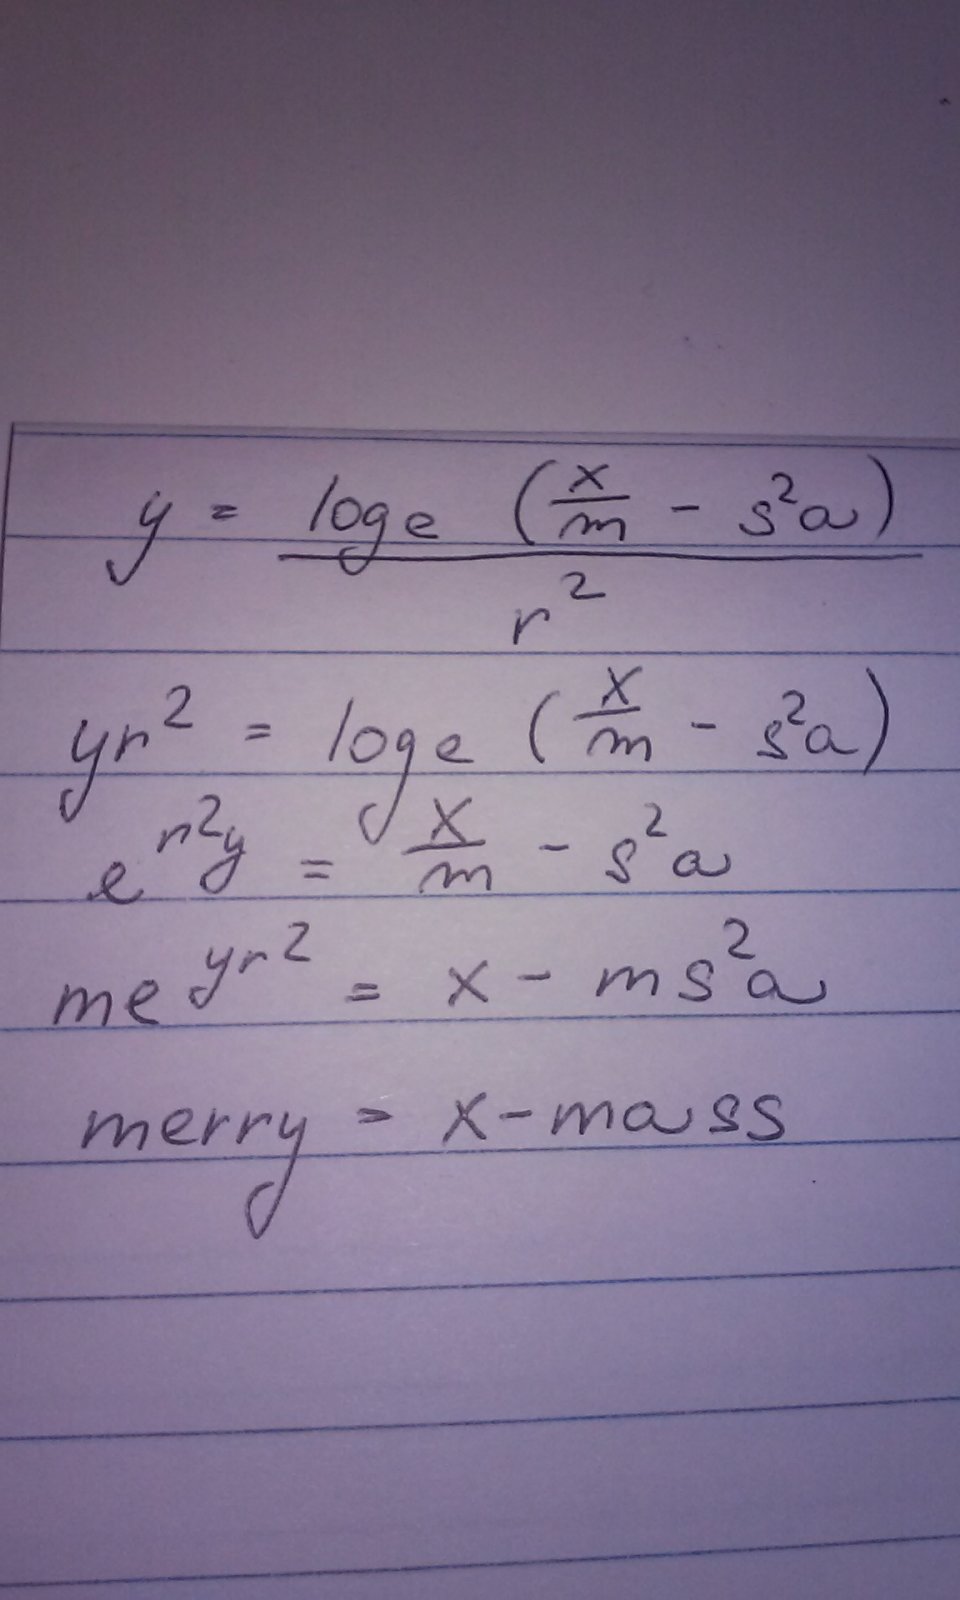 y = log e (x/m - s²a) / r²
yr² = log e (x/m - s²a)
e^r²y = x/m - s²a
me^yr² = x - ms²a
merry = x-mass